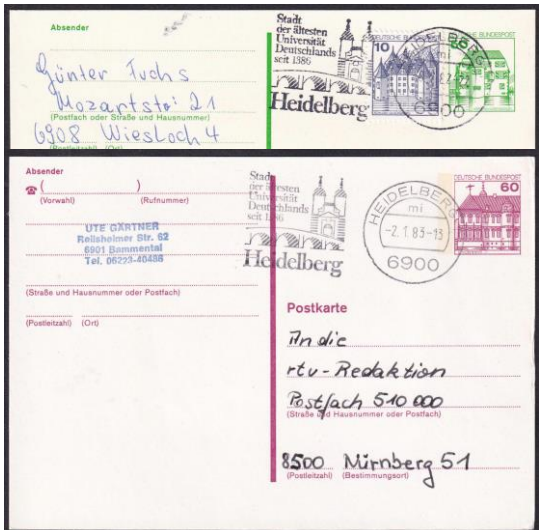 Absender
Günter Fuchs
Mozartstr. 21
(Postfach oder Straße und Hausnummer)
6908 Wiesloch 4
(Postleitzahl) (Ort)
Stadt
der ältesten
Universität
Deutschlands
seit 1386
Heidelberg
10
DEUTSCHE BUNDESPOST
HEIDELBERG
mi
6900
BUNDESPOST
Absender
☎ ( )
(Vorwahl) (Rufnummer)
UTE GÄRTNER
Reilsheimer Str. 62
6901 Bammental
Tel. 06223-40486
(Straße und Hausnummer oder Postfach)
(Postleitzahl) (Ort)
Stadt
der ältesten
Universität
Deutschlands
seit 1386
Heidelberg
HEIDELBERG
mi
-2.1.83-13
6900
DEUTSCHE BUNDESPOST
60
Postkarte
An die
rtv-Redaktion
Postfach 510 000
(Straße und Hausnummer oder Postfach)
8500 Nürnberg 51
(Postleitzahl) (Bestimmungsort)